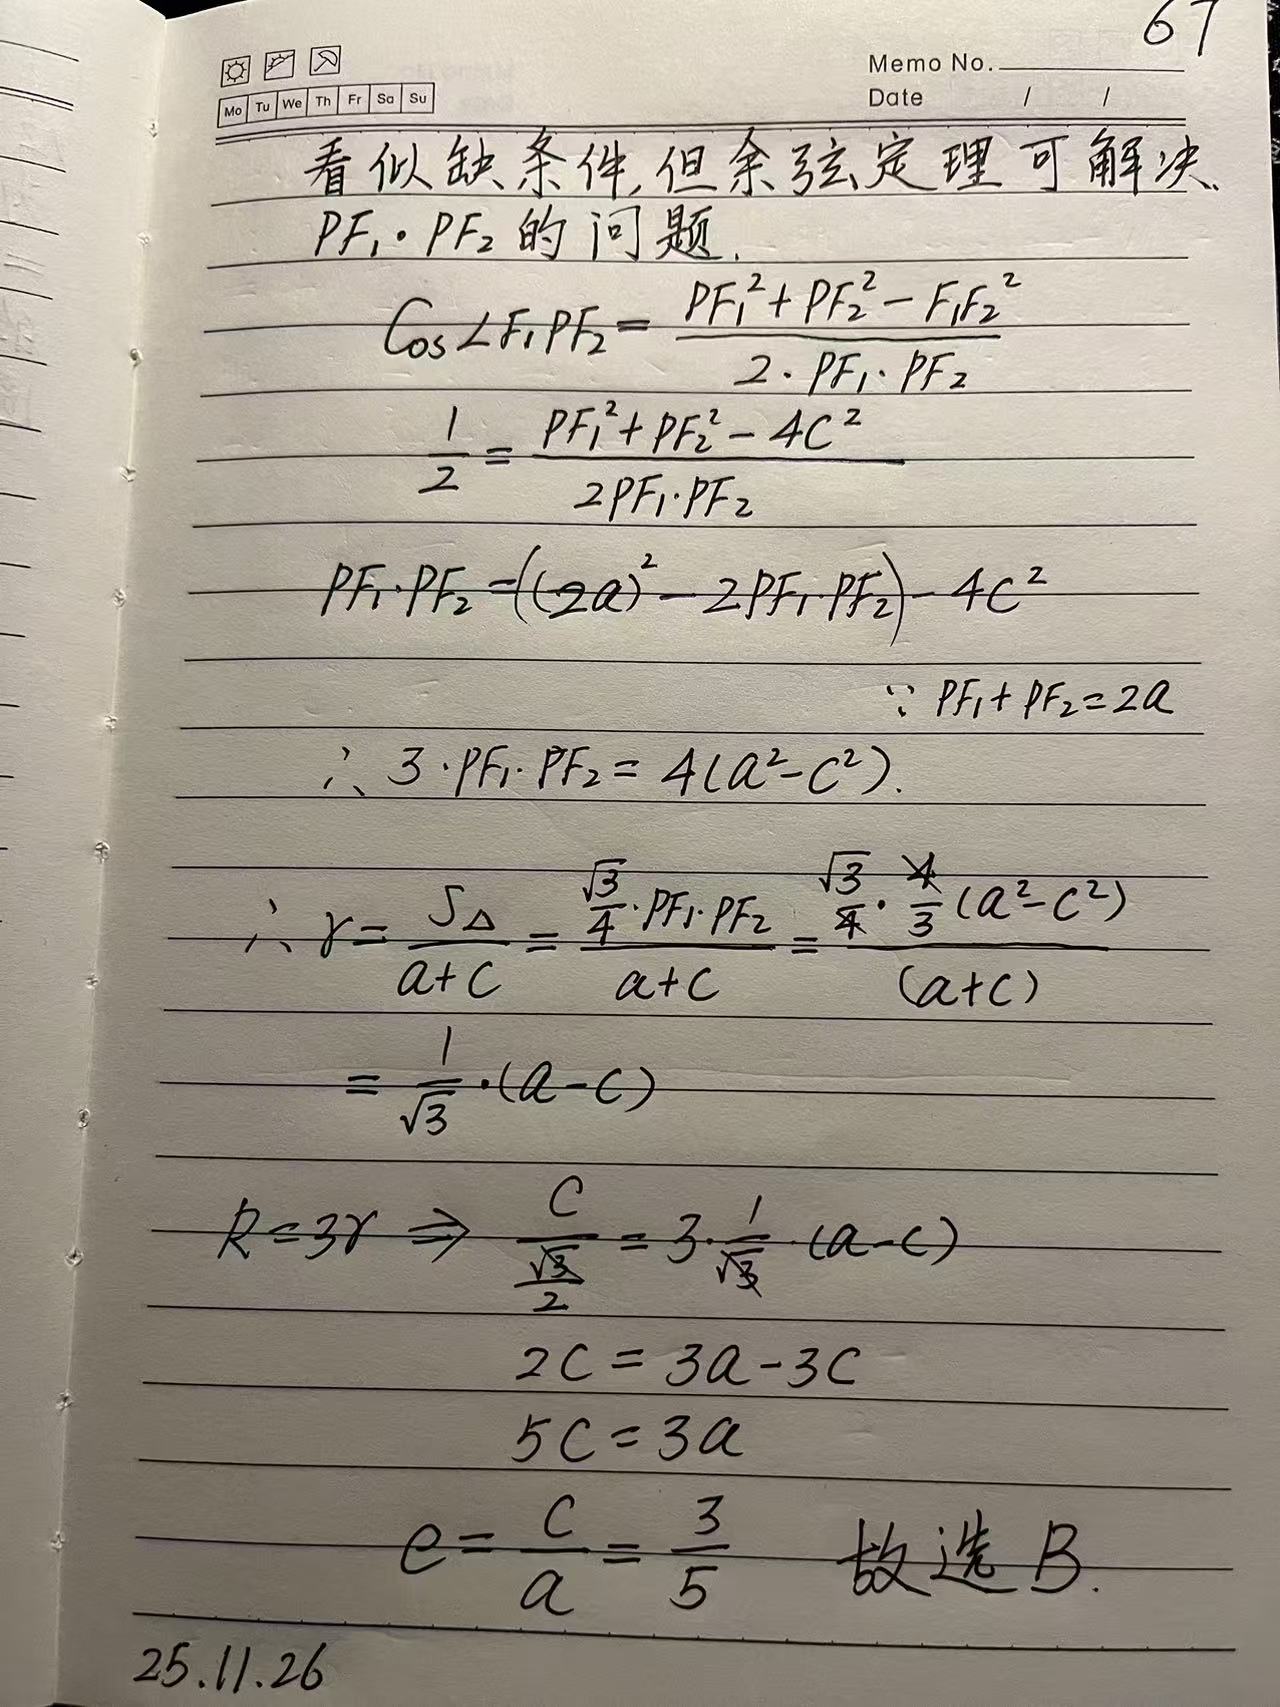 67
Memo No.
Mo Tu We Th Fr Sa Su
Date / /
看似缺条件,但余弦定理可解决
PF₁·PF₂的问题.
Cos∠F₁PF₂ = (PF₁²+PF₂²-F₁F₂²)/(2·PF₁·PF₂)
1/2 = (PF₁²+PF₂²-4C²)/(2PF₁·PF₂)
PF₁·PF₂ = ((2a)²-2PF₁·PF₂)-4C²
∵ PF₁+PF₂=2a
∴ 3·PF₁·PF₂ = 4(a²-C²).
∴ r = S△/(a+C) = (√3/4·PF₁·PF₂)/(a+C) = (√3/4·4/3(a²-C²))/(a+C)
= 1/√3·(a-C)
R=3r ⇒ C/(√3/2) = 3·1/√3·(a-C)
2C = 3a-3C
5C = 3a
e = C/a = 3/5 故选B.
25.11.26